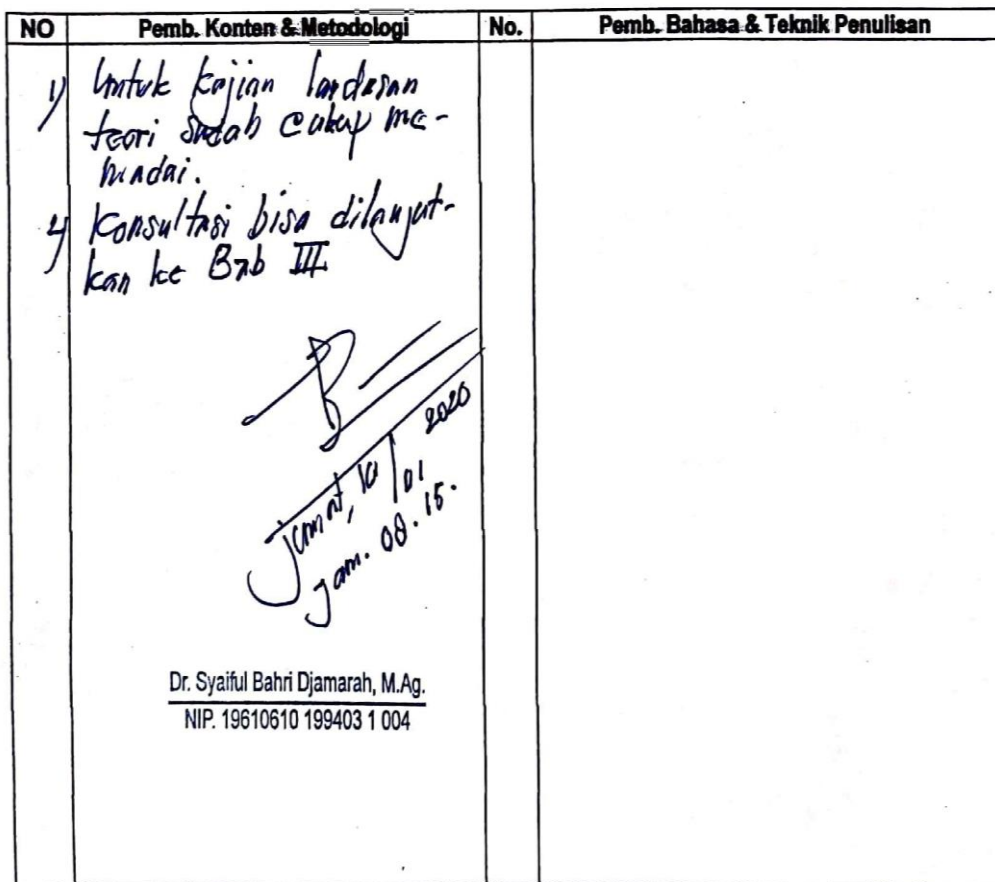 NO Pemb. Konten & Metodologi No. Pemb. Bahasa & Teknik Penulisan
1) Untuk kajian landasan
teori sudah cukup me-
madai.
2) Konsultasi bisa dilanjut-
kan ke Bab III
Jumat, 10/01 2020
jam. 08.15.
Dr. Syaiful Bahri Djamarah, M.Ag.
NIP. 19610610 199403 1 004